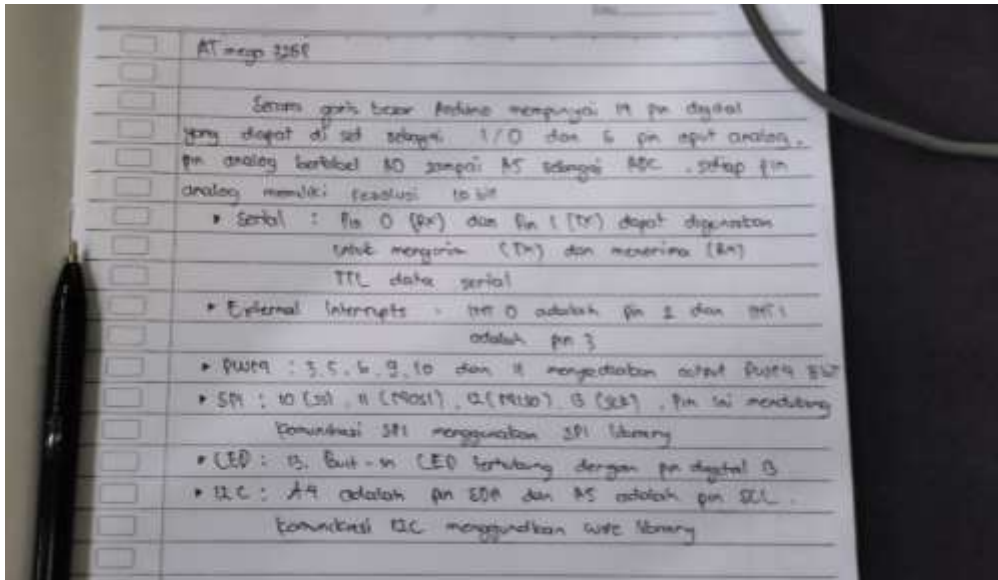 ATmega 328P
Secara garis besar Arduino mempunyai 14 pin digital
yang dapat di set sebagai I/O dan 6 pin input analog,
pin analog berlabel A0 sampai A5 sebagai ADC, setiap pin
analog memiliki resolusi 10 bit
• Serial : Pin 0 (RX) dan Pin 1 (TX) dapat digunakan
untuk mengirim (TX) dan menerima (RX)
TTL data serial
• External Interrupts : INT 0 adalah pin 2 dan INT 1
adalah pin 3
• PWM : 3, 5, 6, 9, 10 dan 11 menyediakan output PWM 8 bit
• SPI : 10 (SS), 11 (MOSI), 12 (MISO), 13 (SCK), Pin ini mendukung
komunikasi SPI menggunakan SPI library
• LED : 13. Buit-in LED terhubung dengan pin digital 13
• I2C : A4 adalah pin SDA dan A5 adalah pin SCL.
Komunikasi I2C menggunakan wire library